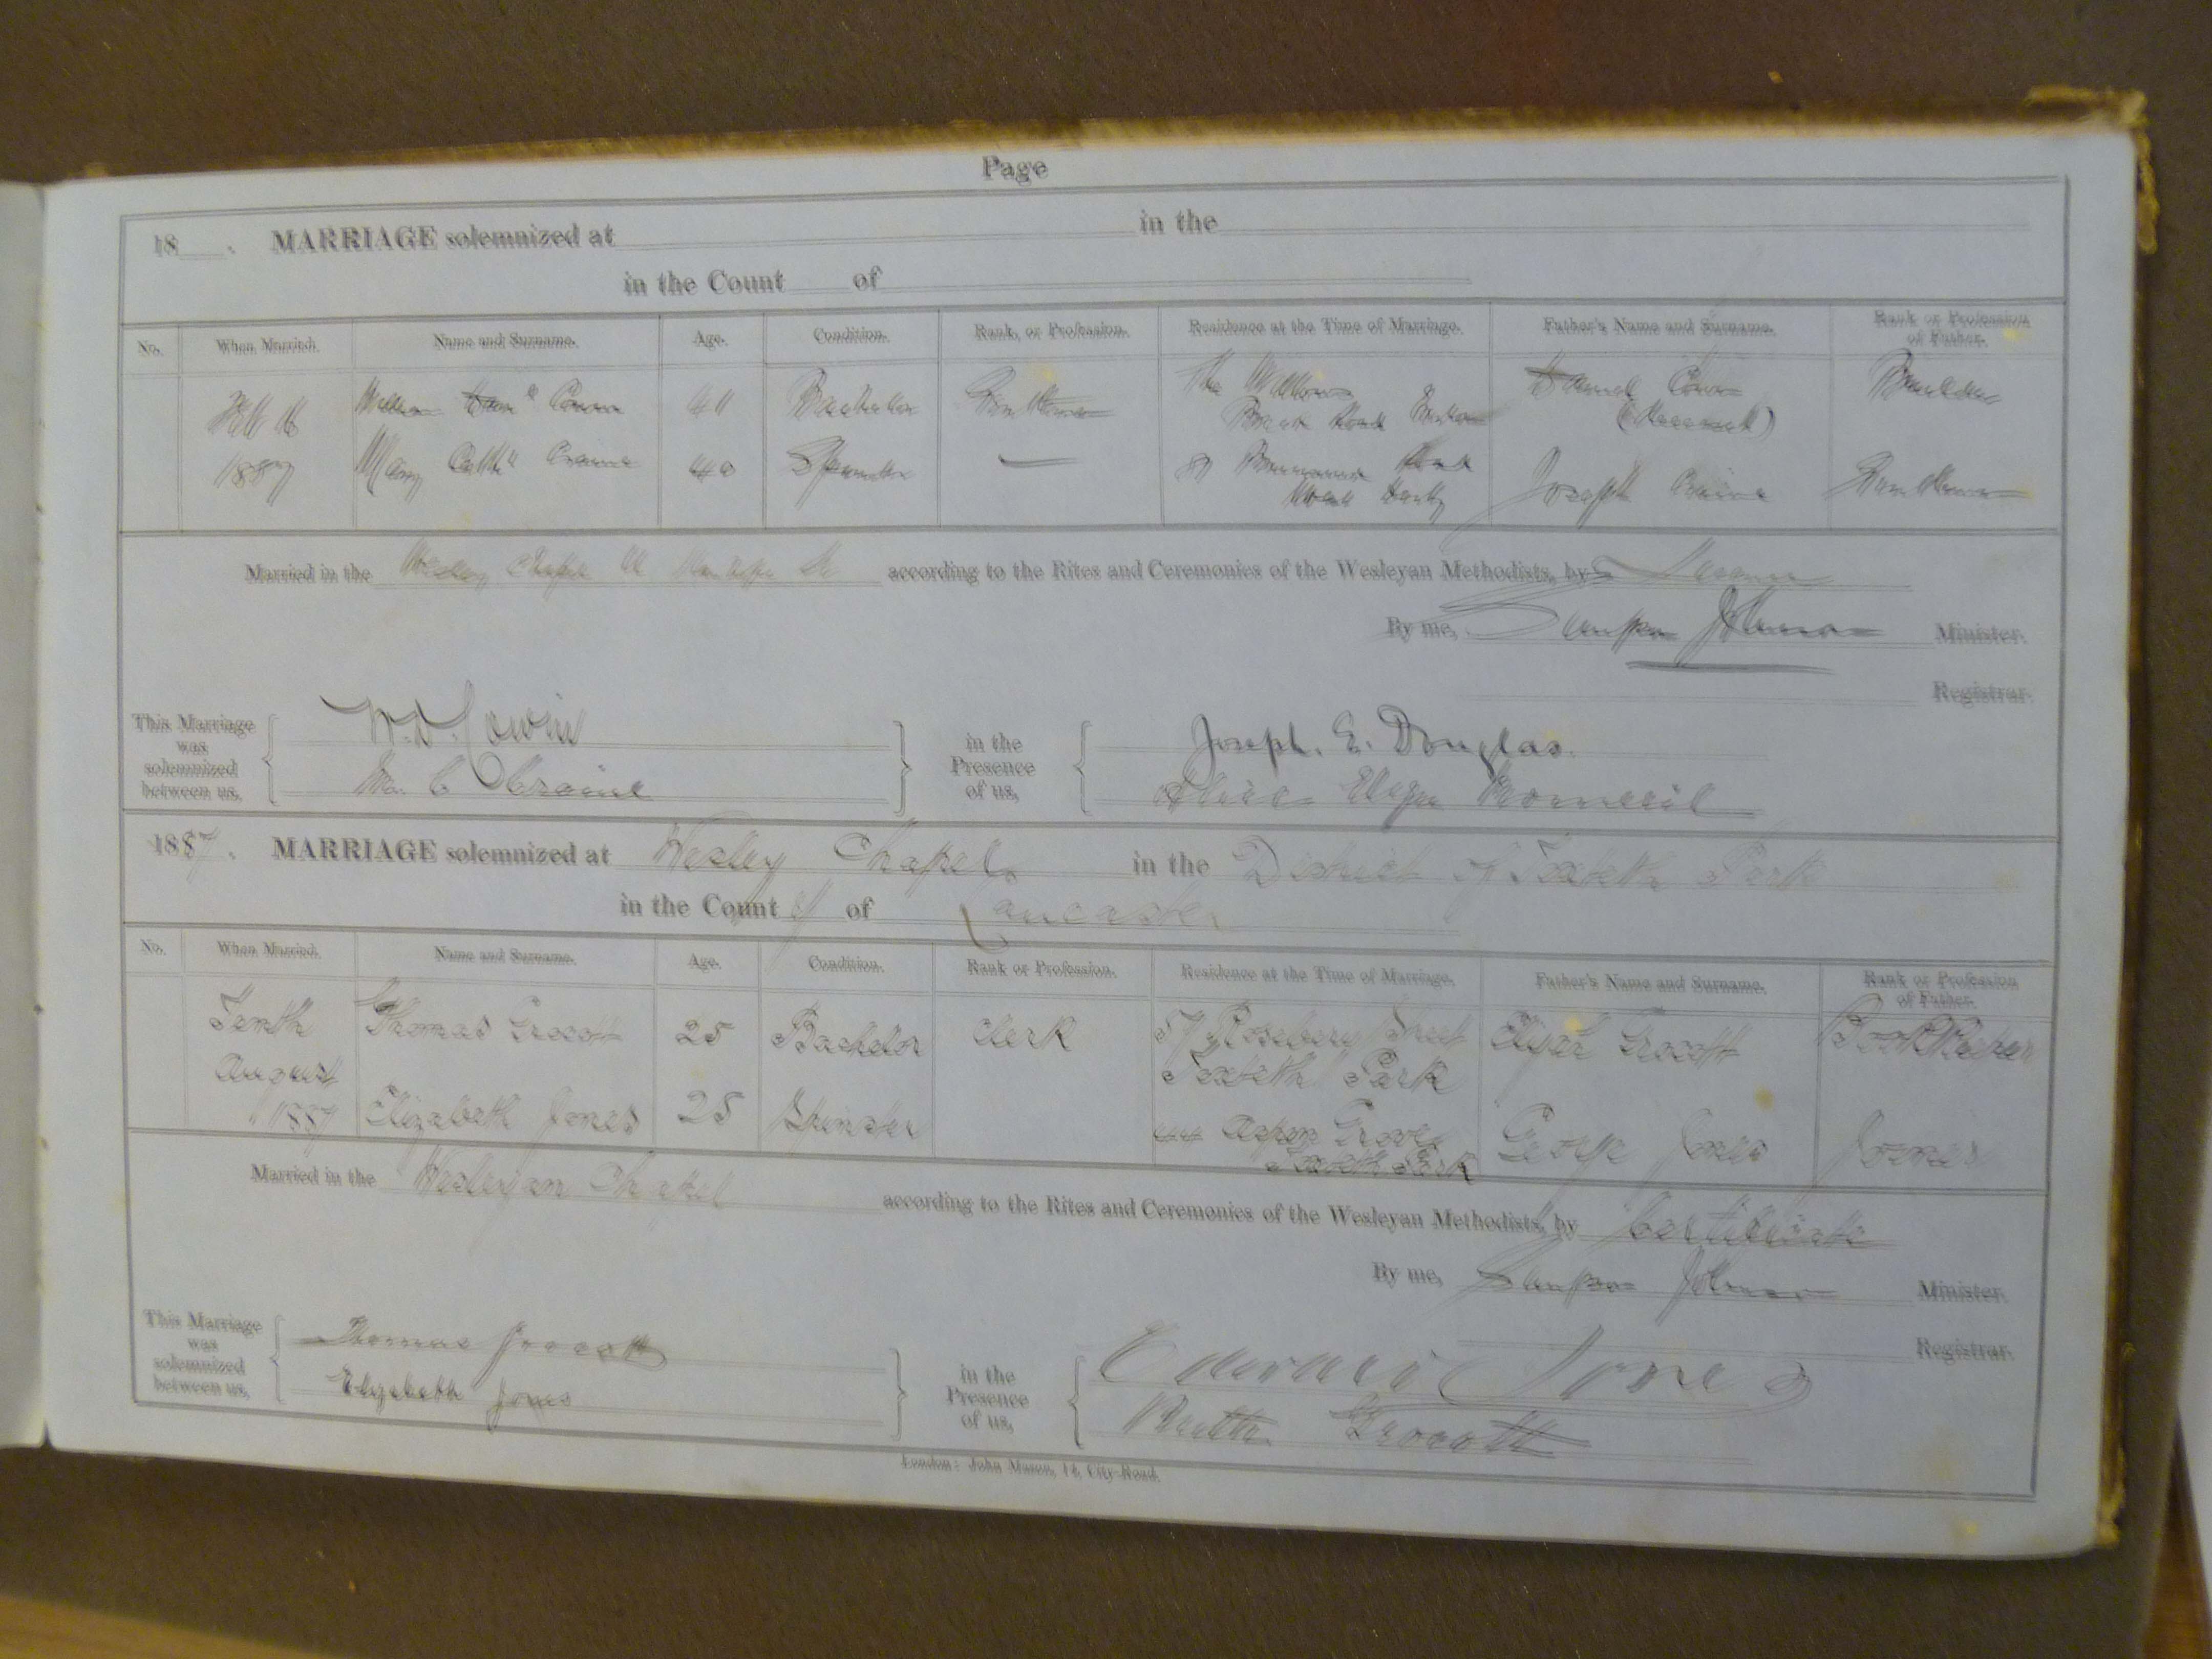 Page
18 . MARRIAGE solemnized at in the
in the Count of
No. When Married. Name and Surname. Age. Condition. Rank, or Profession. Residence at the Time of Marriage. Father's Name and Surname. Rank or Profession of Father.
Feb 16 William 41 Bachelor Gentleman The Willows Daniel Builder
Road (Deceased)
1887 Mary Cath" Craine 40 Spinster — 87 Road Joseph Craine Gentleman
Married in the Wesley Chapel according to the Rites and Ceremonies of the Wesleyan Methodists, by License
By me, Johnson Minister.
Registrar.
This Marriage was solemnized between us, W. D. Cowin in the Presence of us, Joseph. E. Douglas.
M. C Craine Alice
1887. MARRIAGE solemnized at Wesley Chapel in the District of Toxteth Park
in the County of Lancaster
No. When Married. Name and Surname. Age. Condition. Rank or Profession. Residence at the Time of Marriage. Father's Name and Surname. Rank or Profession of Father.
Tenth Thomas Grocott 25 Bachelor Clerk 57 Rosebery Street Elijah Grocott Bookkeeper
August Toxteth Park
1887 Elizabeth Jones 25 Spinster 44 Aspen Grove George Jones Joiner
Toxteth Park
Married in the Wesleyan Chapel according to the Rites and Ceremonies of the Wesleyan Methodists, by Certificate
By me, Johnson Minister.
Registrar.
This Marriage was solemnized between us, Thomas Grocott in the Presence of us, Edward Jones
Elizabeth Jones Grocott
London: John Mason, 14, City-Road.